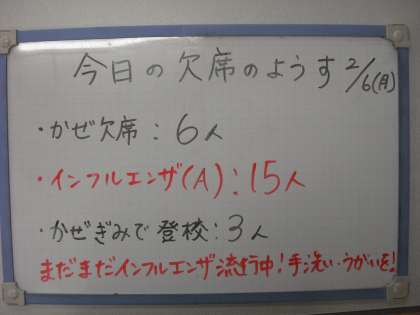 今日の欠席のようす 2/6(月)
・かぜ欠席：6人
・インフルエンザ(A)：15人
・かぜぎみで登校：3人
まだまだインフルエンザ流行中！手洗い・うがいを！